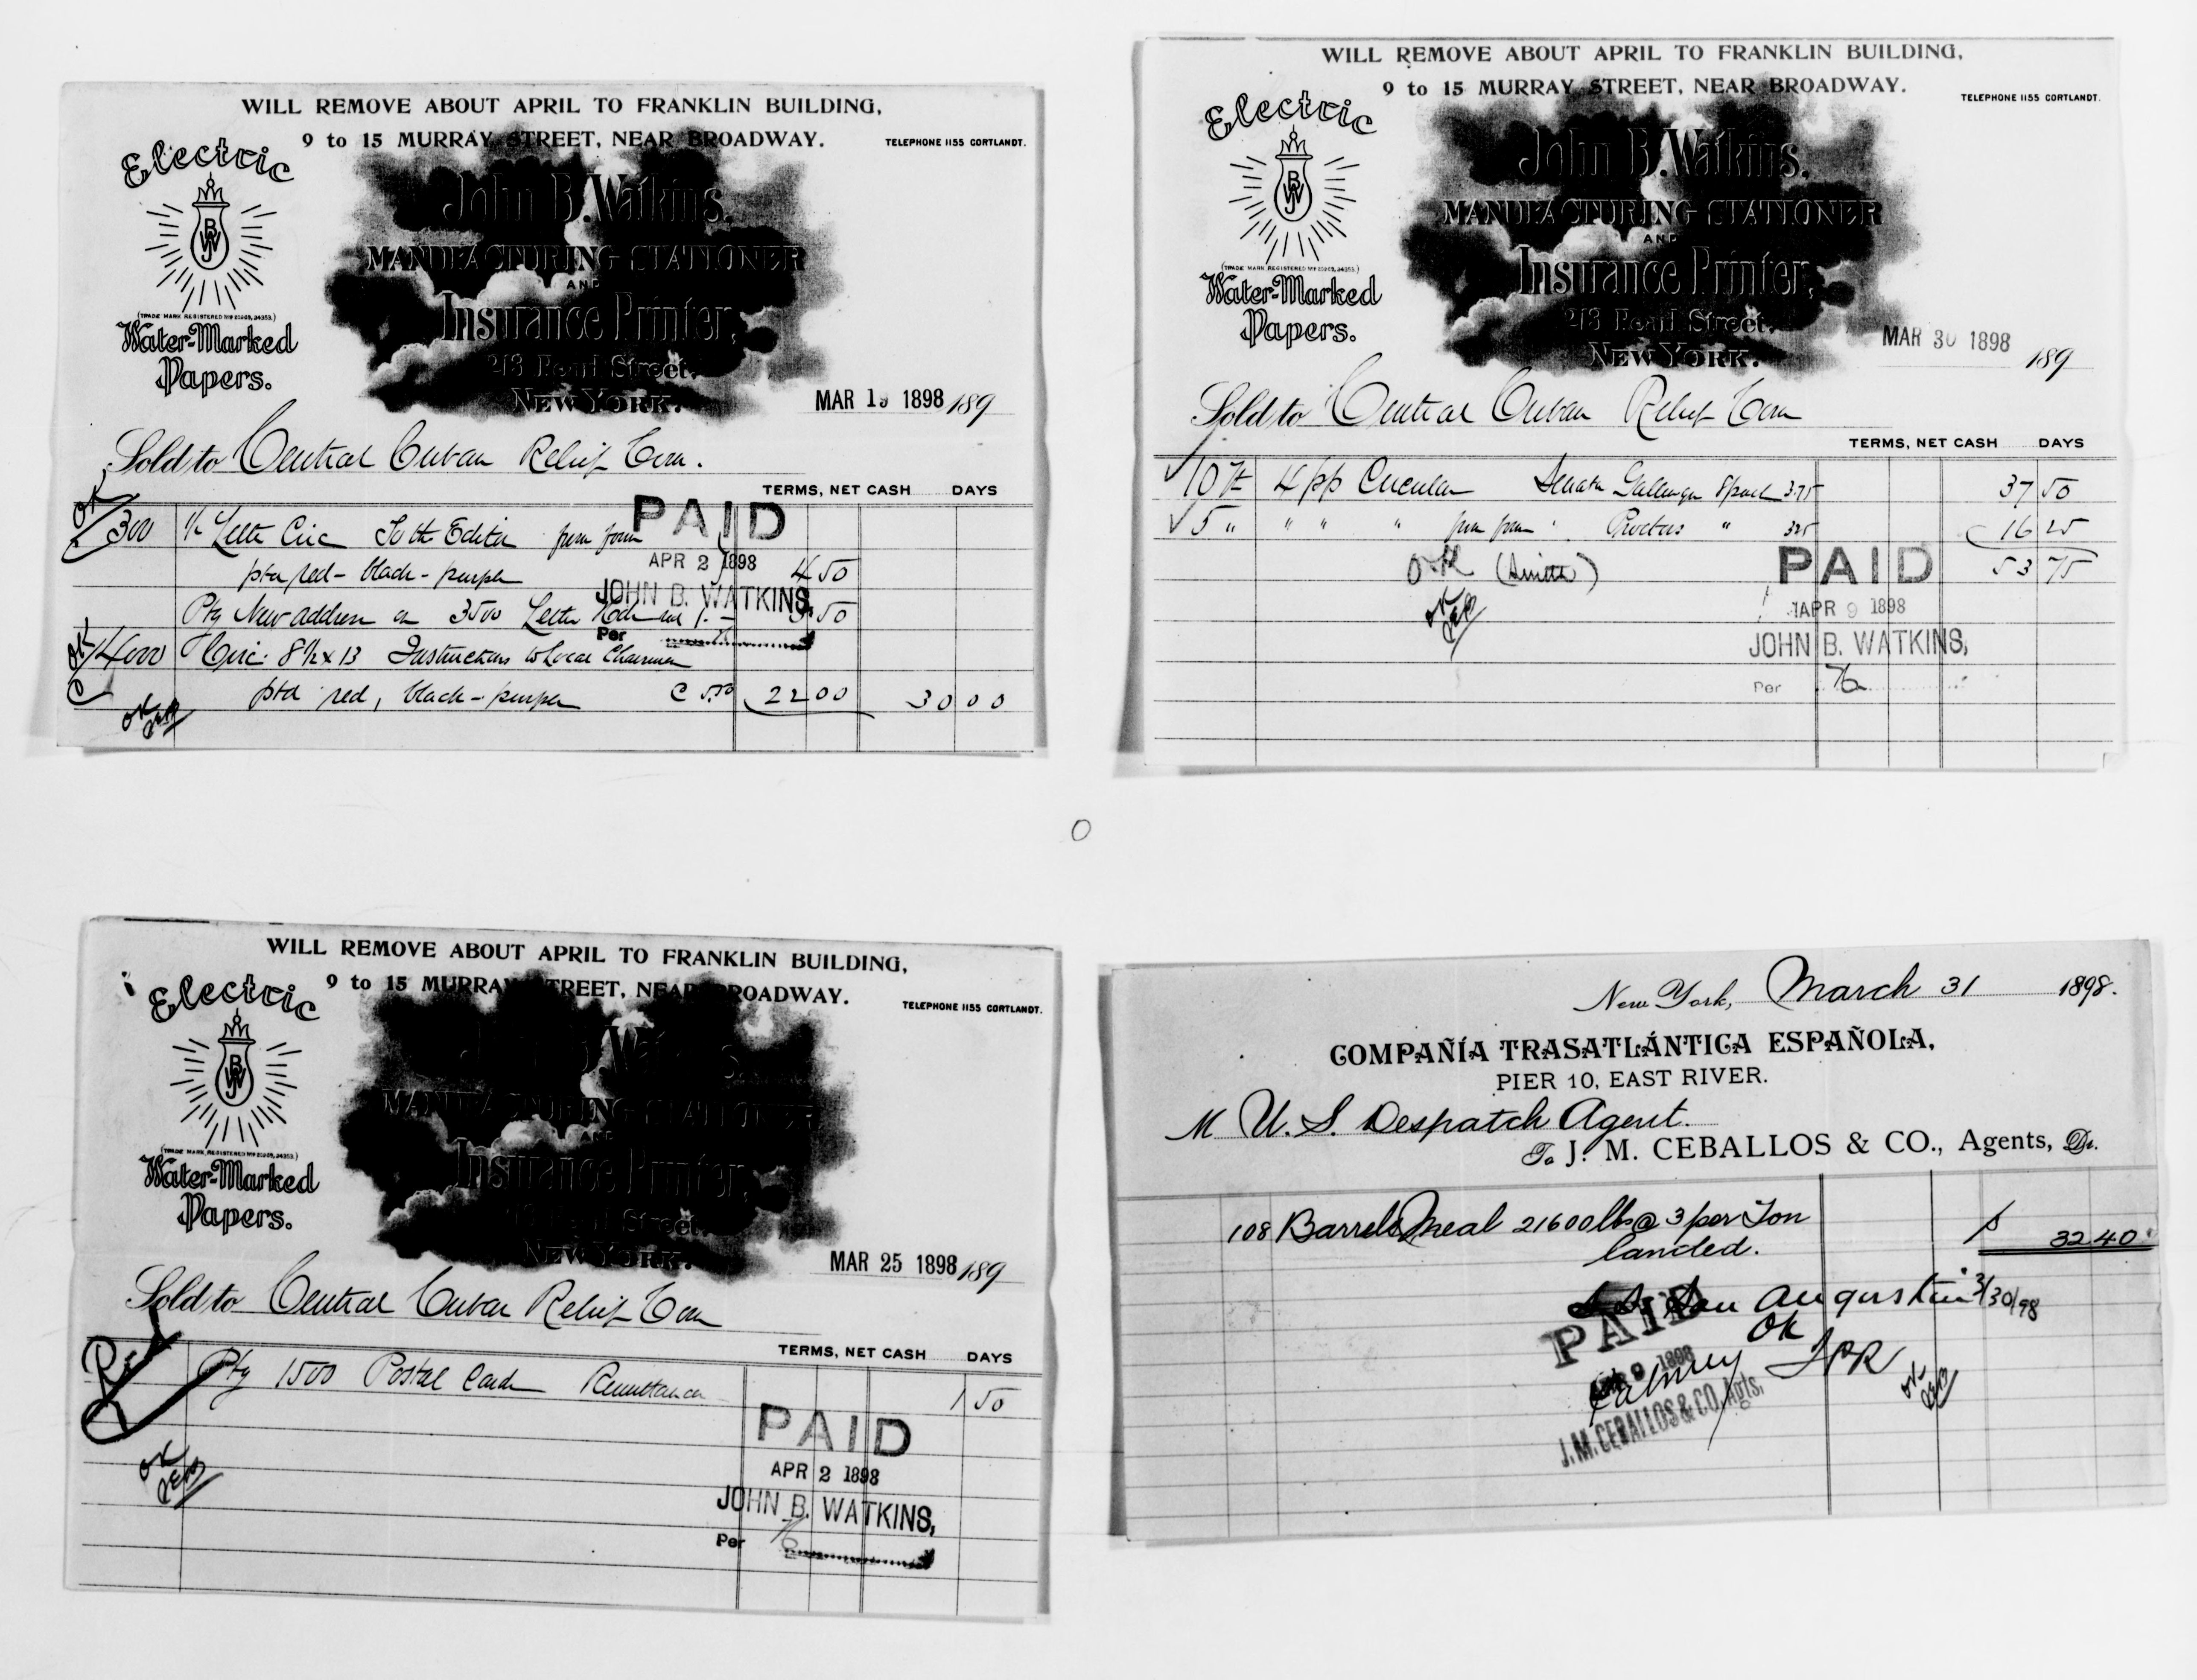 WILL REMOVE ABOUT APRIL TO FRANKLIN BUILDING,
9 to 15 MURRAY STREET, NEAR BROADWAY.
TELEPHONE 1155 CORTLANDT.
Electric
JBW
(TRADE MARK REGISTERED
Water-Marked
Papers.
John B. Watkins,
MANUFACTURING STATIONER
AND
Insurance Printer,
213 Pearl Street,
NEW YORK.
MAR 19 1898 189
Sold to Central Cuban Relief Com.
TERMS, NET CASH DAYS
OK
300 Letter Circ Edition from form
ptd red - black - purple 4 50
Ptg New address on 3500 Letter 1.- 3 50
OK 4000 Circ. 8½ x 13 Instructions to Local Chairmen
ptd red, black - purple @ 5.50 22 00 30 00
OK
PAID
APR 2 1898
JOHN B. WATKINS,
Per
WILL REMOVE ABOUT APRIL TO FRANKLIN BUILDING,
9 to 15 MURRAY STREET, NEAR BROADWAY.
TELEPHONE 1155 CORTLANDT.
Electric
JBW
(TRADE MARK REGISTERED
Water-Marked
Papers.
John B. Watkins,
MANUFACTURING STATIONER
AND
Insurance Printer,
213 Pearl Street,
NEW YORK.
MAR 30 1898 189
Sold to Central Cuban Relief Com
TERMS, NET CASH DAYS
10 M 4 pp Circular Senator Gallinger Speech 3.75 37 50
5 " " " " from form Proctors " 325 16 25
53 75
OK (Smith)
OK
PAID
APR 9 1898
JOHN B. WATKINS,
Per
WILL REMOVE ABOUT APRIL TO FRANKLIN BUILDING,
9 to 15 MURRAY STREET, NEAR BROADWAY.
TELEPHONE 1155 CORTLANDT.
Electric
JBW
(TRADE MARK REGISTERED
Water-Marked
Papers.
MANUFACTURING STATIONER
AND
Insurance Printer,
Pearl Street,
NEW YORK.
MAR 25 1898 189
Sold to Central Cuban Relief Com
TERMS, NET CASH DAYS
Ptg 1500 Postal Cards Remittance 1 50
OK
PAID
APR 2 1898
JOHN B. WATKINS,
Per
New York, March 31 1898.
COMPAÑÍA TRASATLÁNTICA ESPAÑOLA,
PIER 10, EAST RIVER.
M U. S. Despatch Agent.
To J. M. CEBALLOS & CO., Agents, Dr.
108 Barrels Meal 21600 lbs @ 3 per Ton
landed. $ 32 40
San Augustin 3/30/98
OK
PAID
1898
J. M. CEBALLOS & CO. Agts.
OK